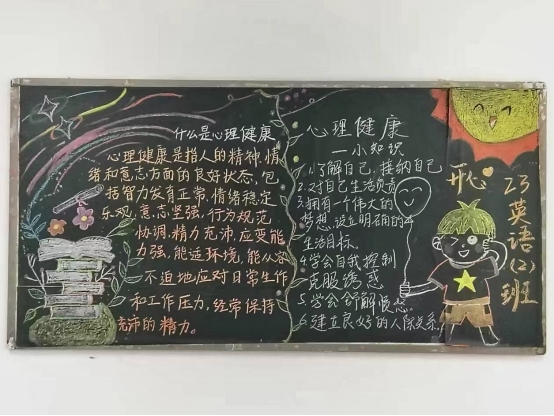 什么是心理健康
心理健康是指人的精神、情
绪和意志方面的良好状态,包
括智力发育正常,情绪稳定
乐观,意志坚强,行为规范
协调,精力充沛,应变能
力强,能适环境,能从容
不迫地应对日常生作
和工作压力,经常保持
充沛的精力。
心理健康
—小知识
1.了解自己,接纳自己
2.对自己生活负责
3.拥有一个伟大的
梦想,设立明确的
生活目标。
4.学会自我控制
克服诱惑
5.学会舒解
6.建立良好的人际关系。
开心
23英语(2)班